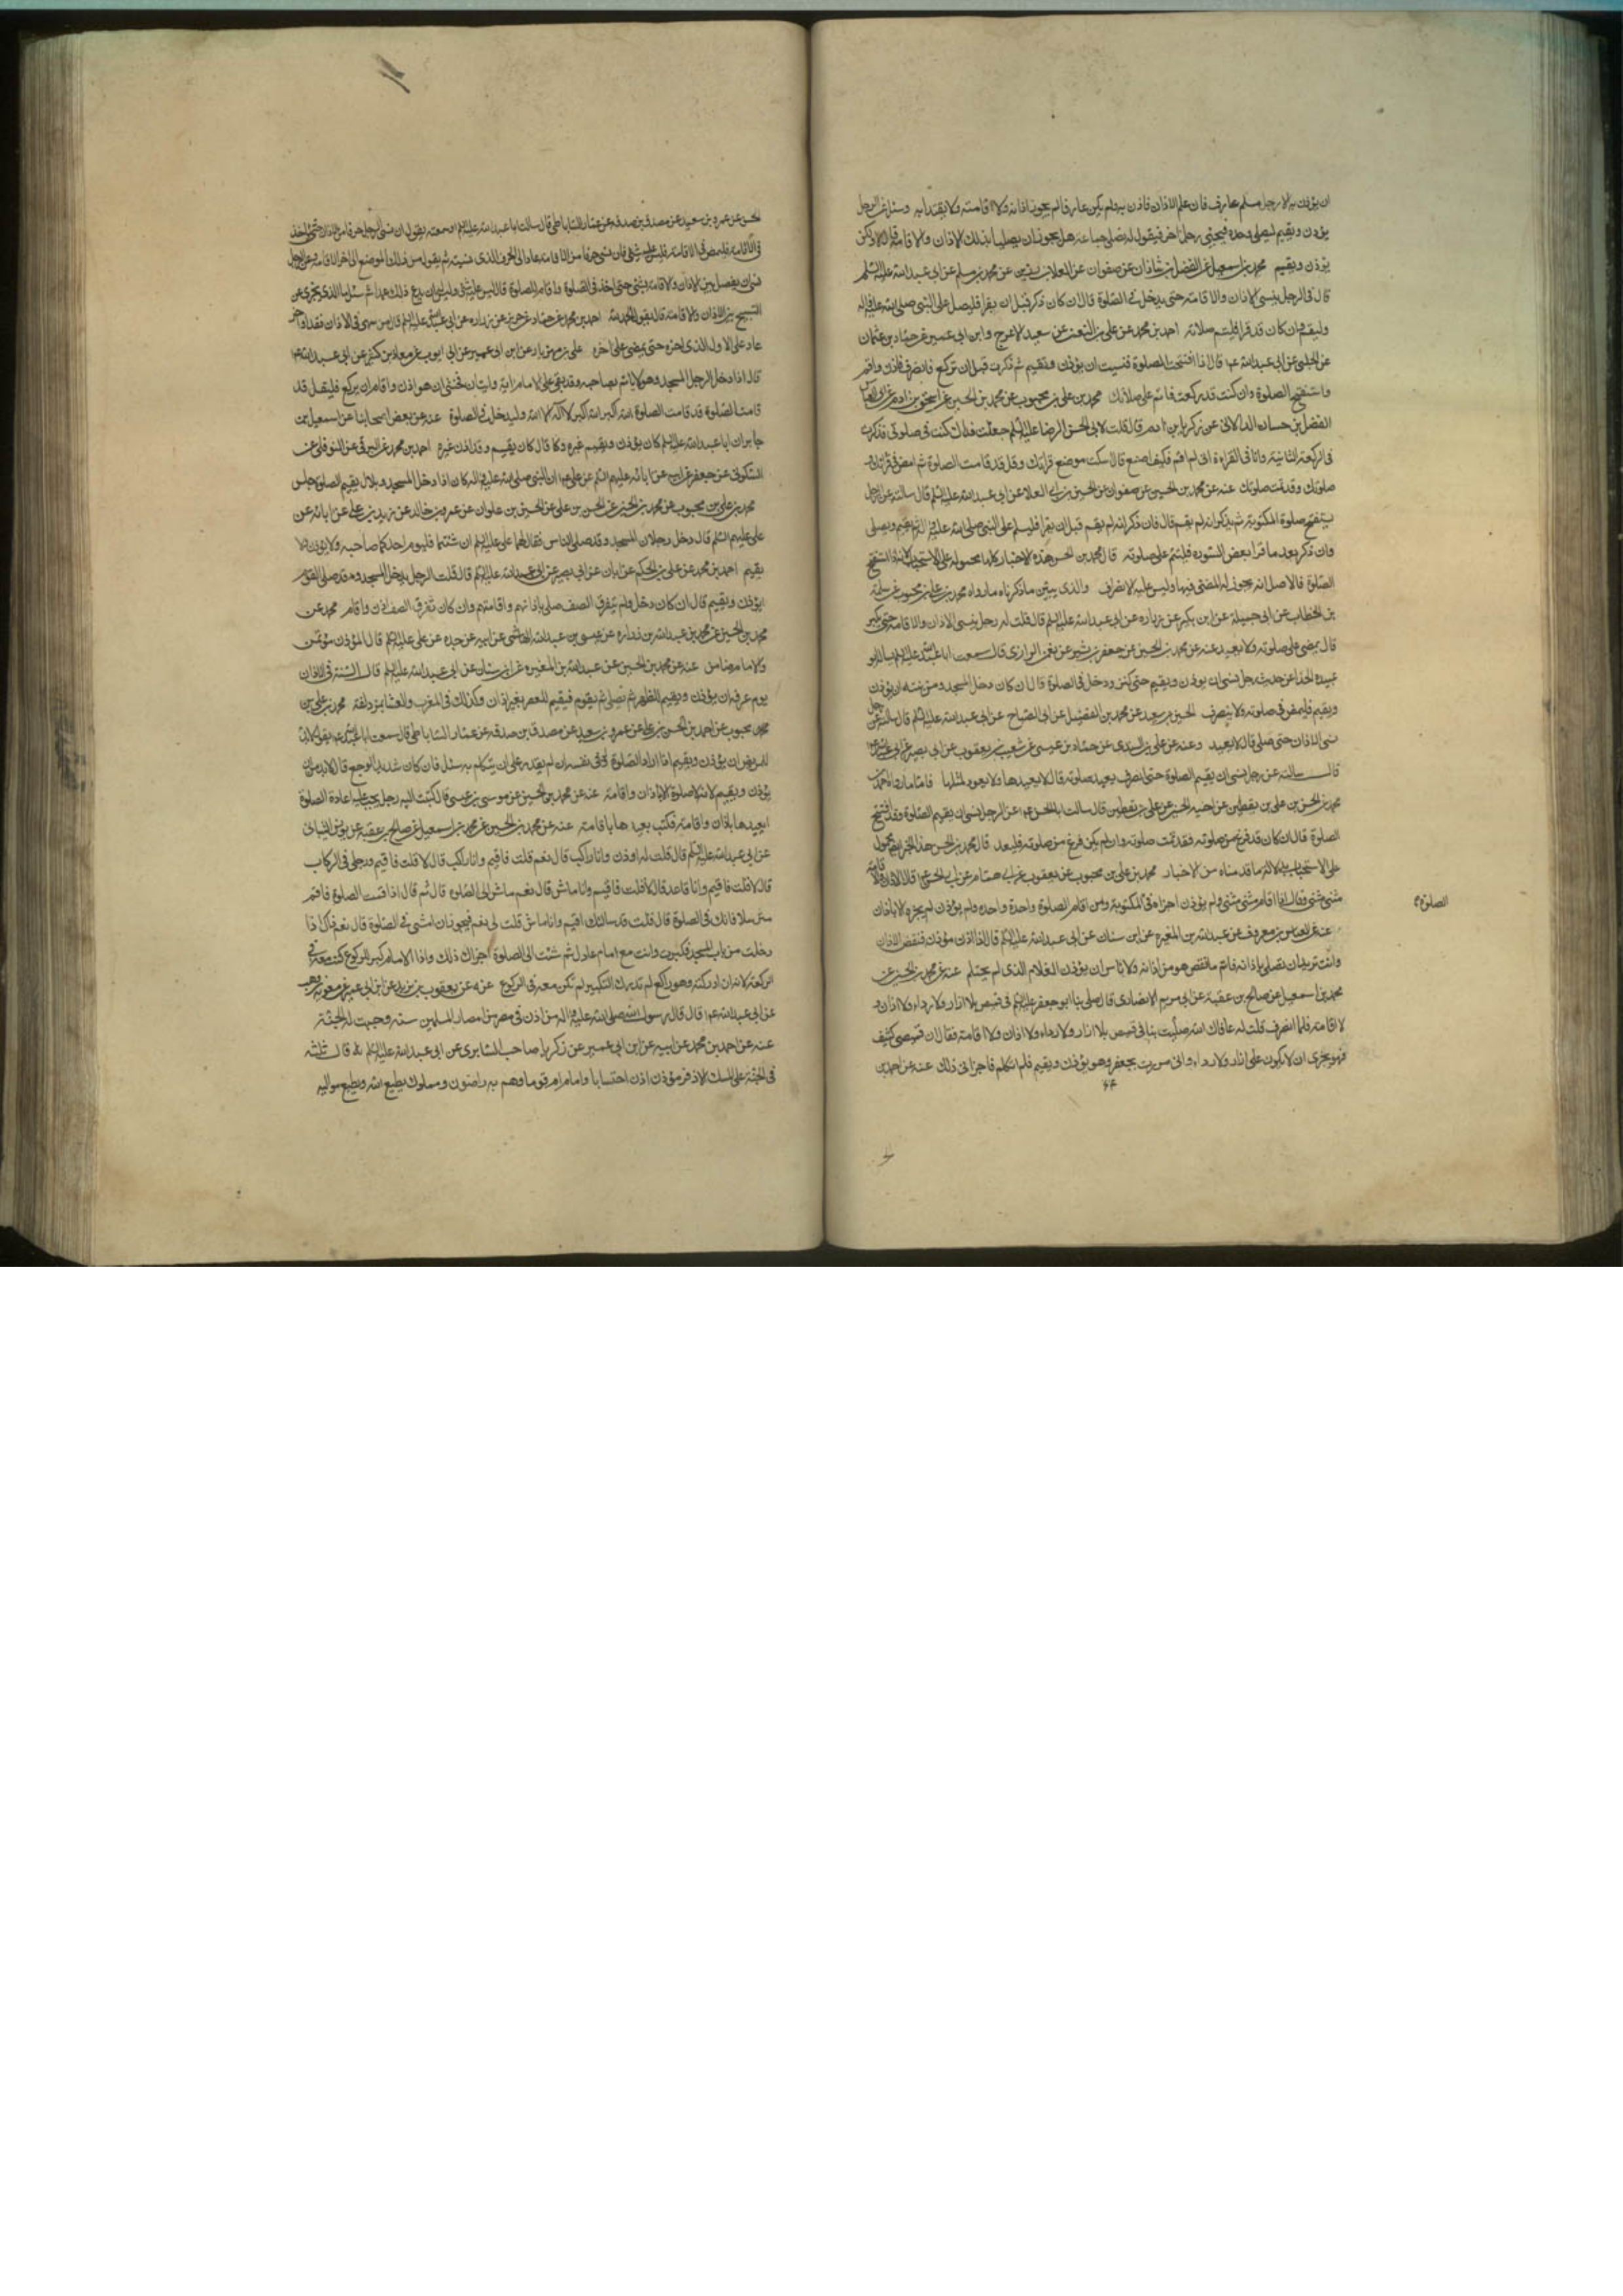 ان يؤذن به الا رجل مسلم عارف فان علم الاذان فاذن به ولم يكن عارفا لم يجز اذانه ولا اقامته ولا يقتدا به وسئل عن الرجل
يؤذن ويقيم ليصلي وحده فيجئ رجل اخر فيقول له نصلي جماعة هل يجوز ان يصليا بذلك الاذان والاقامة قال لا ولكن
يؤذن ويقيم محمد بن اسمعيل عن الفضل بن شاذان عن صفوان عن العلا بن رزين عن محمد بن مسلم عن ابي عبد الله عليه السلم
قال في الرجل ينسى الاذان والاقامة حتى يدخل في الصلوة قال ان كان ذكر قبل ان يقرا فليصل على النبي صلى الله عليه واله
وليقم وان كان قد قرا فليتم صلاته احمد بن محمد عن علي بن النعمن عن سعيد الاعرج وابن ابي عمير عن حماد بن عثمان
عن الحلبي عن ابي عبد الله ع قال اذا افتتحت الصلوة فنسيت ان تؤذن وتقيم ثم ذكرت قبل ان تركع فانصرف فاذن واقم
واستفتح الصلوة وان كنت قد ركعت فاتم على صلاتك محمد بن علي بن محبوب عن محمد بن الحسين عن اسحق بن ادم عن ابي العباس
الفضل بن حسان الدالاني عن زكريا بن ادم قال قلت لابي الحسن الرضا عليه السلم جعلت فداك كنت في صلوتي فذكرت
في الركعة الثانية وانا في القراءة اني لم اقم فكيف اصنع قال اسكت موضع قراتك وقل قد قامت الصلوة ثم امض في قراتك و
صلوتك وقد تمت صلوتك عنه عن محمد بن الحسين عن صفوان عن الحسين بن ابي العلا عن ابي عبد الله عليه السلم قال سالته عن الرجل
يستفتح صلوة المكتوبة ثم يذكر انه لم يقم قال فان ذكر انه لم يقم قبل ان يقرا فليسلم على النبي صلى الله عليه واله ثم يقيم ويصلي
وان ذكر بعد ما قرا بعض السورة فليتم على صلوته قال محمد بن الحسن هذه الاخبار كلها محمولة على الاستحباب
الصلوة فالاصل انه يجوز له المضي فيها وليس عليه الانصراف والذي يبين ما ذكرناه ما رواه محمد بن علي بن محبوب عن سلمة
بن الخطاب عن ابي جميلة عن ابن بكير عن زرارة عن ابي عبد الله عليه السلم قال قلت له رجل ينسى الاذان والاقامة حتى يكبر
قال يمضي على صلوته ولا يعيد عنه عن محمد بن الحسين عن جعفر بن بشير عن نعمن الرازي قال سمعت ابا عبد الله عليه السلم وساله ابو
عبيدة الحذا عن حديث رجل نسي ان يؤذن ويقيم حتى كبر ودخل في الصلوة قال ان كان دخل المسجد ومن نيته ان يؤذن
ويقيم فليمض في صلوته ولا ينصرف الحسين بن سعيد عن محمد بن الفضيل عن ابي الصباح عن ابي عبد الله عليه السلم قال سالته عن رجل
نسي الاذان حتى صلى قال لا يعيد وعنه عن علي بن السندي عن حماد بن عيسى عن شعيب بن يعقوب عن ابي بصير عن ابي عبد الله ع
قال سالته عن رجل نسي ان يقيم الصلوة حتى انصرف يعيد صلوته قال لا يعيدها ولا يعود لمثلها فاما ما رواه احمد بن
محمد عن الحسن بن علي بن يقطين عن اخيه الحسين عن علي بن يقطين قال سالت ابا الحسن ع عن الرجل ينسى ان يقيم الصلوة وقد افتتح
الصلوة قال ان كان قد فرغ من صلوته فقد تمت صلوته وان لم يكن فرغ من صلوته فليعد قال محمد بن الحسن هذا الخبر محمول
على الاستحباب بدلالة ما قدمناه من الاخبار محمد بن علي بن محبوب عن يعقوب عن ابي همام عن ابي الحسن ع قال الاذان والاقامة
مثنى مثنى وقال اذا اقام مثنى مثنى ولم يؤذن اجزاه في المكتوبة ومن اقام الصلوة واحدة واحدة ولم يؤذن لم يجزه الا باذان
عنه عن العباس بن معروف عن عبد الله بن المغيرة عن ابن سنان عن ابي عبد الله عليه السلم قال اذا اذن مؤذن فنقص الاذان
وانت تريد ان تصلي باذانه فاتم ما نقص هو من اذانه ولا باس ان يؤذن الغلام الذي لم يحتلم عنه عن محمد بن الحسين عن
محمد بن اسمعيل عن صالح بن عقبة عن ابي مريم الانصاري قال صلى بنا ابو جعفر عليه السلم في قميص بلا ازار ولا رداء ولا اذان و
لا اقامة فلما انصرف قلت له عافاك الله صليت بنا في قميص بلا ازار ولا رداء ولا اذان ولا اقامة فقال ان قميصي كثيف
فهو يجزي ان لا يكون علي ازار ولا رداء واني مررت بجعفر وهو يؤذن ويقيم فلم اتكلم فاجزاني ذلك عنه عن احمد بن
الصلوة
الحسن عن عمرو بن سعيد عن مصدق بن صدقة عن عمار الساباطي قال سالت ابا عبد الله عليه السلم او سمعته يقول ان نسي الرجل حرفا من الاذان حتى ياخذ
في الاقامة فليمض في الاقامة فليس عليه شئ فان نسي حرفا من الاقامة عاد الى الحرف الذي نسيه ثم يقول من ذلك الموضع الى اخر الاقامة وعن الرجل
نسي ان يفصل بين الاذان والاقامة بشئ حتى اخذ في الصلوة واقام للصلوة قال ليس عليه شئ وليس له ان يدع ذلك عمدا ثم سئل ما الذي يجزي من
التسبيح بين الاذان والاقامة قال يقول الحمد لله احمد بن محمد عن حماد عن حريز عن زرارة عن ابي عبد الله عليه السلم قال من سهى في الاذان فقدم او اخر
عاد على الاول الذي اخره حتى يمضي على اخره علي بن مهزيار عن ابن ابي عمير عن ابي ايوب عن معاذ بن كثير عن ابي عبد الله ع
قال اذا دخل الرجل المسجد وهو لا ياتم بصاحبه وقد بقي على الامام اية وايتان فخشي ان هو اذن واقام ان يركع فليقل قد
قامت الصلوة قد قامت الصلوة الله اكبر الله اكبر لا اله الا الله وليدخل في الصلوة عنه عن بعض اصحابنا عن اسمعيل بن
جابر ان ابا عبد الله عليه السلم كان يؤذن ويقيم غيره وكا قال كان يقيم وقد اذن غيره احمد بن محمد عن البرقي عن النوفلي عن
السكوني عن جعفر عن ابيه عن ابائه عليهم السلم عن علي ع ان النبي صلى الله عليه واله كان اذا دخل المسجد وبلال يقيم الصلوة جلس
محمد بن علي بن محبوب عن محمد بن الحسين عن الحسن بن علي عن الحسين بن علوان عن عمرو بن خالد عن زيد بن علي عن ابائه عن
علي عليهم السلم قال دخل رجلان المسجد وقد صلى الناس فقال لهما علي عليه السلم ان شئتما فليؤم احدكما صاحبه ولا يؤذن ولا
يقيم احمد بن محمد عن علي بن الحكم عن ابان عن ابي بصير عن ابي عبد الله عليه السلم قال قلت الرجل يدخل المسجد وقد صلى القوم
ايؤذن ويقيم قال ان كان دخل ولم يتفرق الصف صلى باذانهم واقامتهم وان كان تفرق الصف اذن واقام محمد عن
محمد بن الحسين عن محمد بن عبد الله بن زرارة عن عيسى بن عبد الله الهاشمي عن ابيه عن جده عن علي عليه السلم قال المؤذن مؤتمن
والامام ضامن عنه عن محمد بن الحسين عن عبد الله بن المغيرة عن ابن سنان عن ابي عبد الله عليه السلم قال السنة في الاذان
يوم عرفة ان يؤذن ويقيم للظهر ثم تصلي ثم يقوم فيقيم للعصر بغير اذان وكذلك في المغرب والعشا بمزدلفة محمد بن علي بن
محبوب عن احمد بن الحسن بن علي عن عمرو بن سعيد عن مصدق بن صدقة عن عمار الساباطي قال سمعت ابا عبد الله ع يقول لابد
للمريض ان يؤذن ويقيم اذا اراد الصلوة ولو في نفسه ان لم يقدر على ان يتكلم به سئل فان كان شديد الوجع قال لابد من ان
يؤذن ويقيم لانه لا صلوة الا باذان واقامة عنه عن محمد بن الحسين عن موسى بن عيسى قال كتبت اليه رجل يجب عليه اعادة الصلوة
ايعيدها باذان واقامة فكتب يعيدها باقامة عنه عن محمد بن الحسين عن محمد بن اسمعيل عن صالح بن عقبة عن يونس الشيباني
عن ابي عبد الله عليه السلم قال قلت له اوذن وانا راكب قال نعم قلت فاقيم وانا راكب قال لا قلت فاقيم ورجلي في الركاب
قال لا قلت فاقيم وانا قاعد قال لا قلت فاقيم وانا ماش قال نعم ماش الى الصلوة قال ثم قال اذا اقمت الصلوة فاقم
مترسلا فانك في الصلوة قال قلت قد سالتك اقيم وانا ماش قلت لي نعم فيجوز ان امشي في الصلوة قال نعم قال اذا
دخلت من باب المسجد فكبرت وانت مع امام عادل ثم مشيت الى الصلوة اجزاك ذلك واذا الامام كبر للركوع كنت معه في
الركعة لانه ان ادركته وهو راكع لم تدرك التكبير لم تكن معه في الركوع عنه عن يعقوب بن يزيد عن ابن ابي عمير عن معوية بن وهب
عن ابي عبد الله ع قال قال رسول الله صلى الله عليه واله من اذن في مصر من امصار المسلمين سنة وجبت له الجنة
عنه عن احمد بن محمد عن ابيه عن ابن ابي عمير عن زكريا صاحب السابري عن ابي عبد الله عليه السلم قال ثلثة
في الجنة على المسك الاذفر مؤذن اذن احتسابا وامام ام قوما وهم به راضون ومملوك يطيع الله ويطيع مواليه